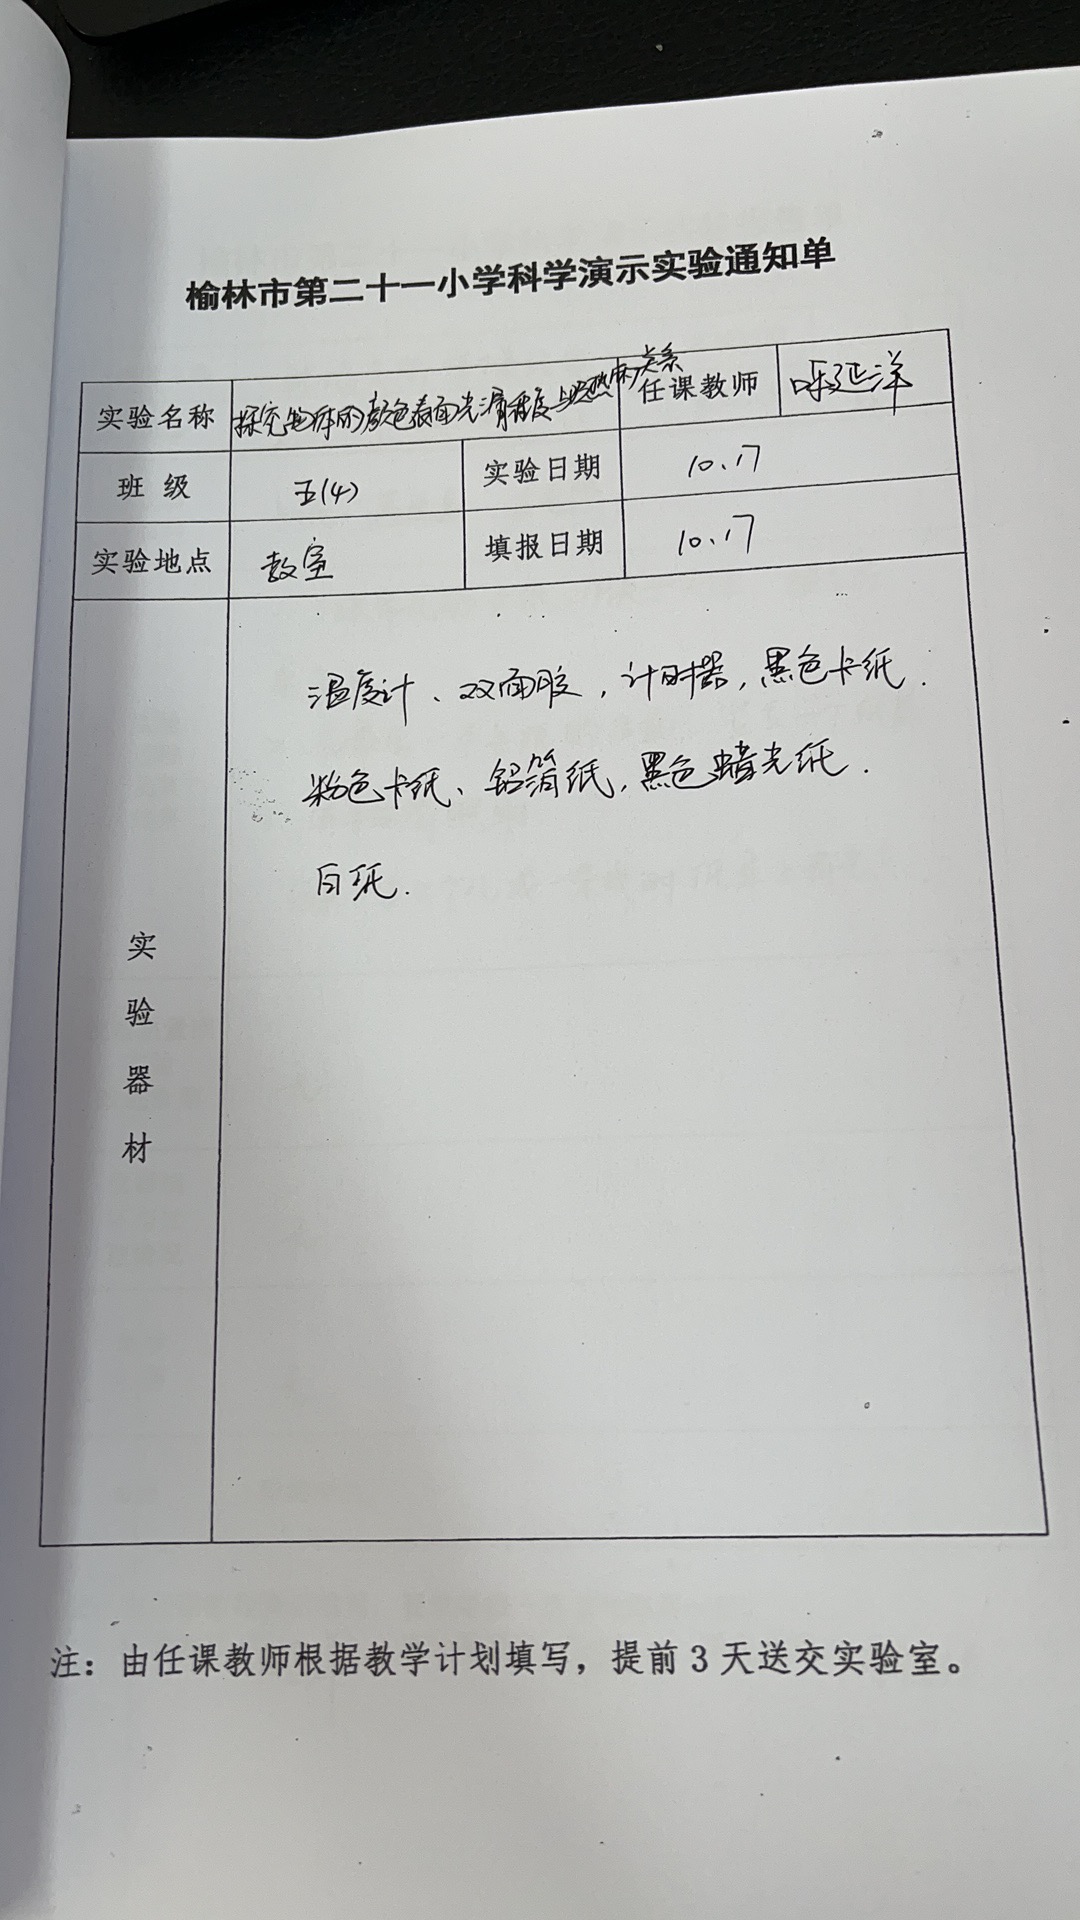 榆林市第二十一小学科学演示实验通知单
实验名称 探究物体的颜色表面光滑程度与吸热的关系 任课教师 延洋
班 级 五(4) 实验日期 10.17
实验地点 教室 填报日期 10.17
实验器材
温度计、双面胶,计时器,黑色卡纸.
粉色卡纸、铝箔纸,黑色蜡光纸.
白纸.
注:由任课教师根据教学计划填写,提前 3 天送交实验室。